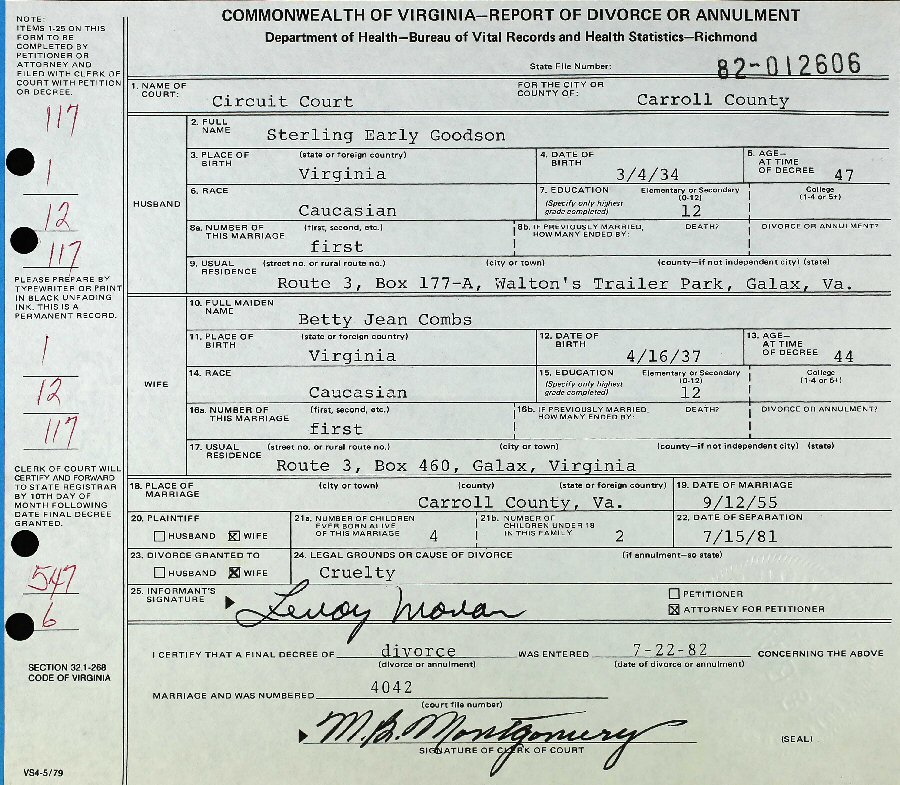 COMMONWEALTH OF VIRGINIA—REPORT OF DIVORCE OR ANNULMENT
Department of Health—Bureau of Vital Records and Health Statistics—Richmond
State File Number: 82-012606
NOTE:
ITEMS 1-25 ON THIS
FORM TO BE
COMPLETED BY
PETITIONER OR
ATTORNEY AND
FILED WITH CLERK OF
COURT WITH PETITION
OR DECREE.
117
1
12
117
PLEASE PREPARE BY
TYPEWRITER OR PRINT
IN BLACK UNFADING
INK. THIS IS A
PERMANENT RECORD.
1
12
117
CLERK OF COURT WILL
CERTIFY AND FORWARD
TO STATE REGISTRAR
BY 10TH DAY OF
MONTH FOLLOWING
DATE FINAL DECREE
GRANTED.
547
6
SECTION 32.1-268
CODE OF VIRGINIA
VS4-5/79
1. NAME OF COURT: Circuit Court FOR THE CITY OR COUNTY OF: Carroll County
HUSBAND
2. FULL NAME Sterling Early Goodson
3. PLACE OF BIRTH (state or foreign country) Virginia 4. DATE OF BIRTH 3/4/34 5. AGE—AT TIME OF DECREE 47
6. RACE Caucasian 7. EDUCATION (Specify only highest grade completed) Elementary or Secondary (0-12) 12 College (1-4 or 5+)
8a. NUMBER OF THIS MARRIAGE (first, second, etc.) first 8b. IF PREVIOUSLY MARRIED, HOW MANY ENDED BY: DEATH? DIVORCE OR ANNULMENT?
9. USUAL RESIDENCE (street no. or rural route no.) (city or town) (county—if not independent city) (state)
Route 3, Box 177-A, Walton's Trailer Park, Galax, Va.
WIFE
10. FULL MAIDEN NAME Betty Jean Combs
11. PLACE OF BIRTH (state or foreign country) Virginia 12. DATE OF BIRTH 4/16/37 13. AGE—AT TIME OF DECREE 44
14. RACE Caucasian 15. EDUCATION (Specify only highest grade completed) Elementary or Secondary (0-12) 12 College (1-4 or 5+)
16a. NUMBER OF THIS MARRIAGE (first, second, etc.) first 16b. IF PREVIOUSLY MARRIED, HOW MANY ENDED BY: DEATH? DIVORCE OR ANNULMENT?
17. USUAL RESIDENCE (street no. or rural route no.) (city or town) (county—if not independent city) (state)
Route 3, Box 460, Galax, Virginia
18. PLACE OF MARRIAGE (city or town) (county) (state or foreign country) Carroll County, Va. 19. DATE OF MARRIAGE 9/12/55
20. PLAINTIFF HUSBAND X WIFE 21a. NUMBER OF CHILDREN EVER BORN ALIVE OF THIS MARRIAGE 4 21b. NUMBER OF CHILDREN UNDER 18 IN THIS FAMILY 2 22. DATE OF SEPARATION 7/15/81
23. DIVORCE GRANTED TO HUSBAND X WIFE 24. LEGAL GROUNDS OR CAUSE OF DIVORCE (if annulment—so state) Cruelty
25. INFORMANT'S SIGNATURE Leroy Moran PETITIONER
X ATTORNEY FOR PETITIONER
I CERTIFY THAT A FINAL DECREE OF divorce WAS ENTERED 7-22-82 CONCERNING THE ABOVE
(divorce or annulment) (date of divorce or annulment)
MARRIAGE AND WAS NUMBERED 4042
(court file number)
M.B. Montgomery
SIGNATURE OF CLERK OF COURT
(SEAL)